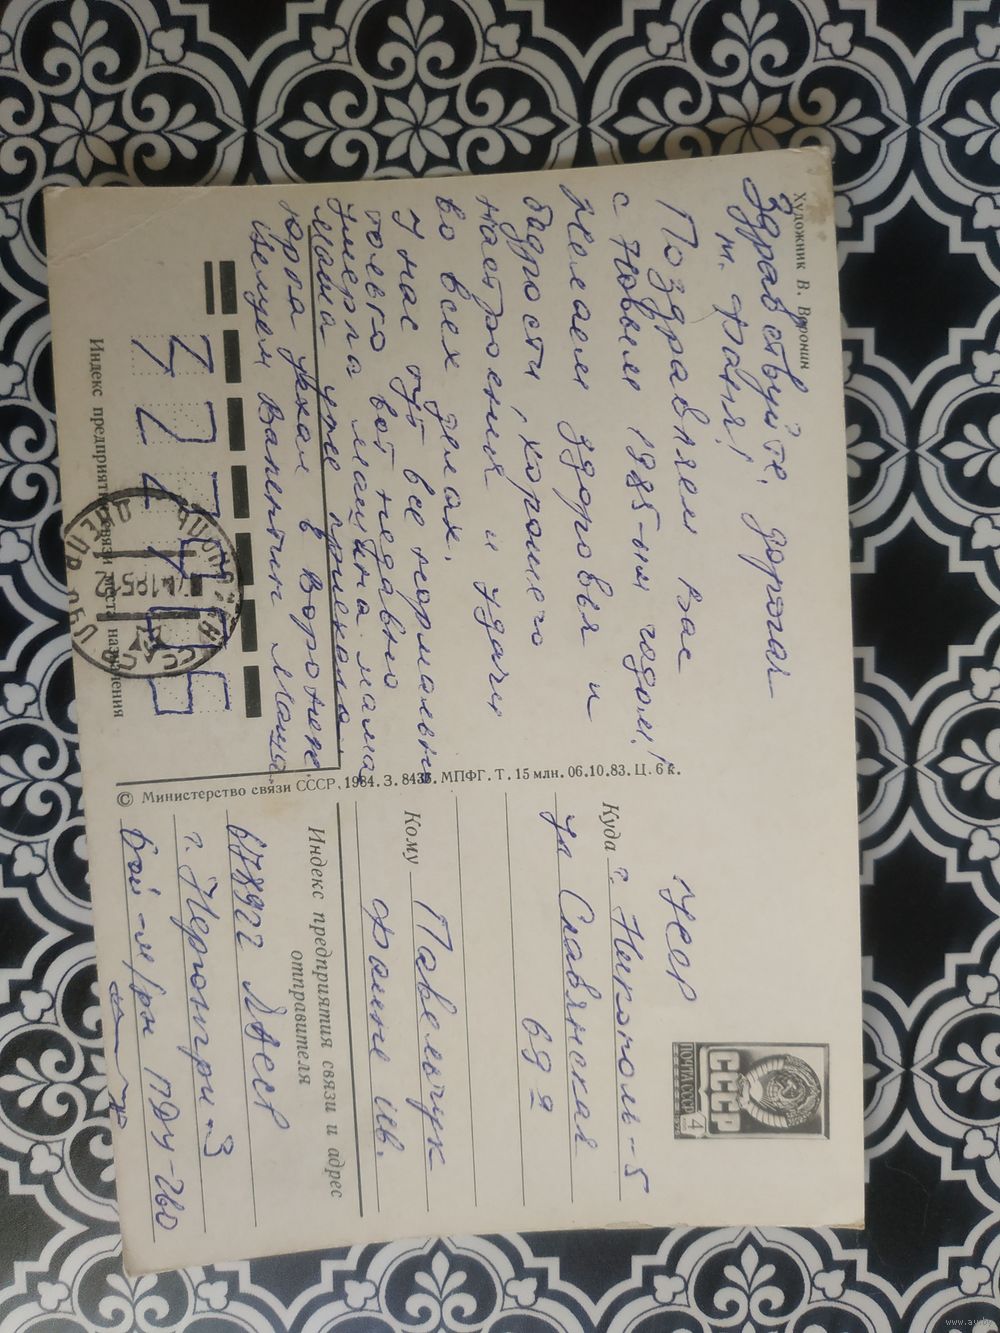 Художник В. Воронин
Здравствуйте, дорогая
т. Фаня!
Поздравляем вас
с Новым 1985-ым годом!
Желаем здоровья и
бодрости, хорошего
настроения и удачи
во всех делах.
У нас тут все нормально
только вот недавно
умерла мама
Мама уже приехала.
Юра уехал в Воронеж.
Целуем Валентин Маша.
Индекс предприятия связи места назначения
© Министерство связи СССР. 1984. З. 8433. МПФГ. Т. 15 млн. 06.10.83. Ц. 6 к.
ПОЧТА СССР
СССР
4
УССР
Куда г. Никополь-5
ул Славянская
69
Кому Павельчук
Фаине Ив.
Индекс предприятия связи и адрес
отправителя
678922 ЯАССР
г. Нерюнгри-3
www.ay.by